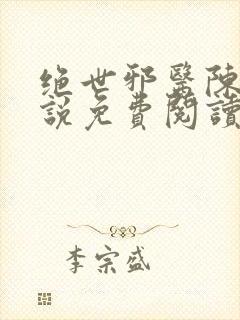 绝世邪醫陳
説免費閱讀
李宗盛